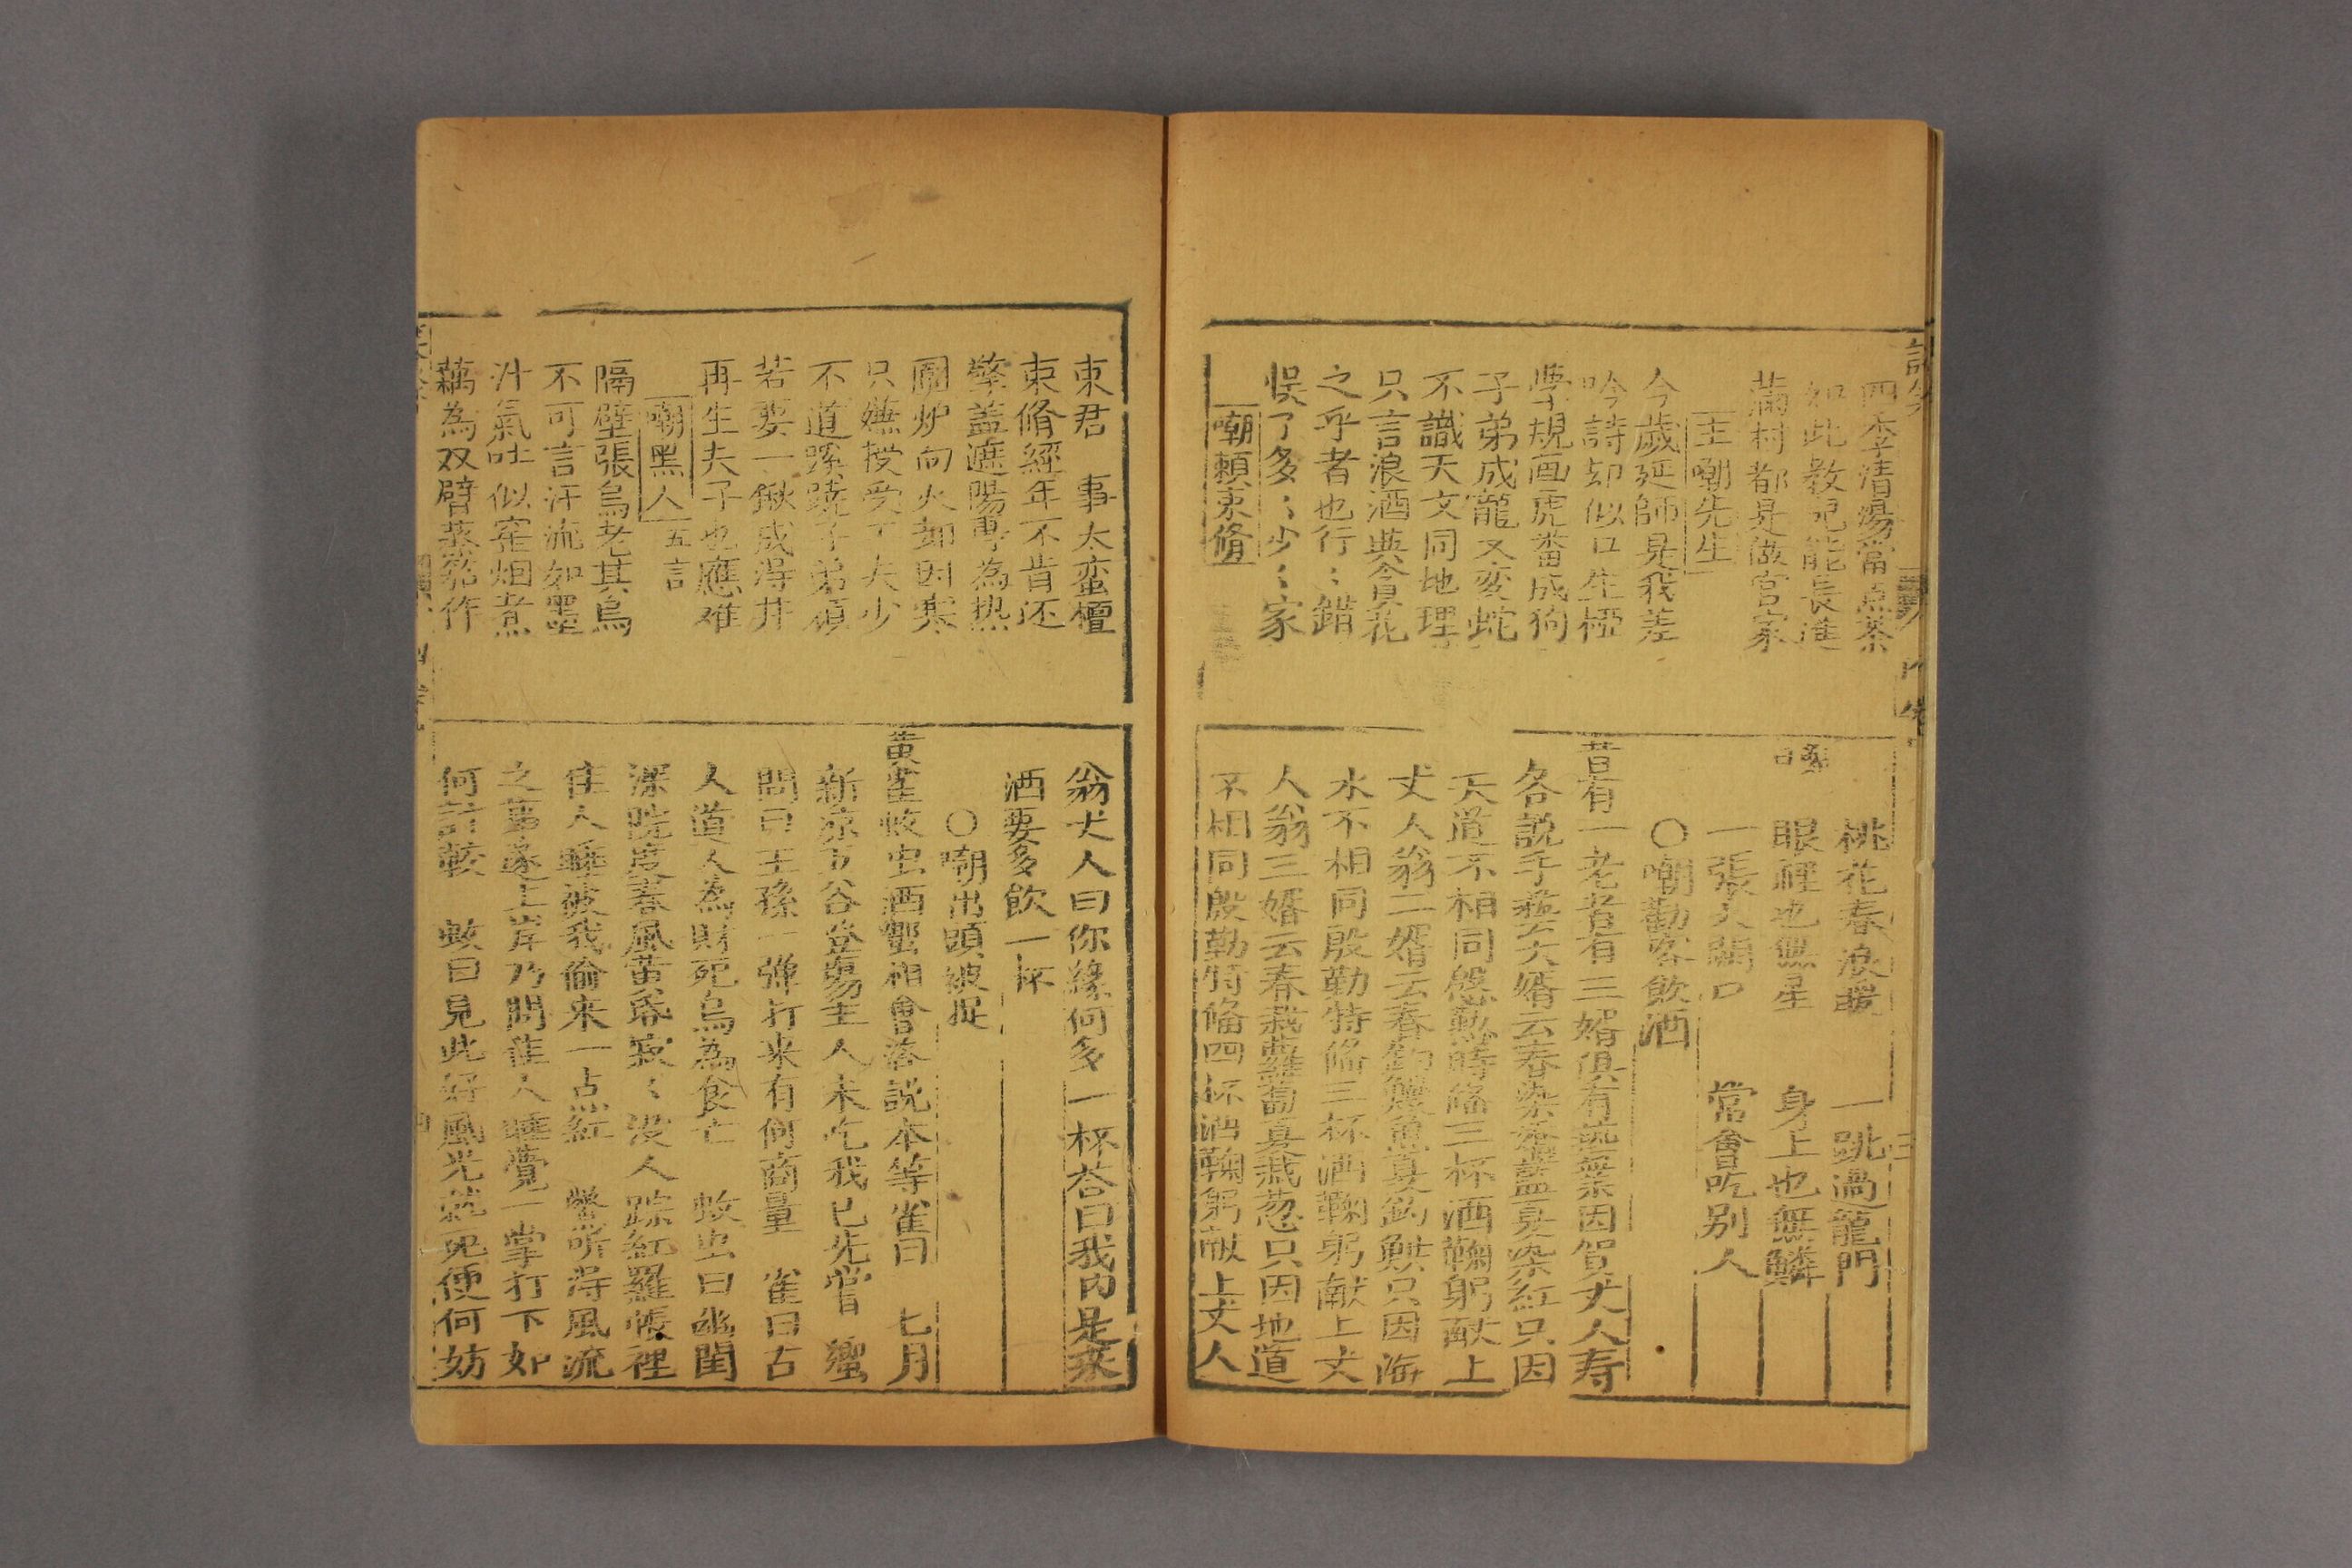 四季清湯當点茶
如此教兒能長進
滿村都是做官家
主嘲先生
今歲延師是我差
吟詩却似口生椏
學規画虎番成狗
子弟成龍又变蛇
不識天文同地理
只言浪酒與貪花
之乎者也行〻錯
悞了多〻少〻家
嘲頼束脩
桃花春浪暖 一跳過龍門
眼裡也無星 身上也無鱗
一張大闊口 常會吃別人
○嘲勸客飲酒
昔有一老者有三婿俱有藝業因賀丈人寿
各説手藝大婿云春染 藍夏染紅只因
天道不相同慇懃特俻二杯酒鞠躬献上
丈人翁二婿云春釣鰻魚夏釣 只因海
水不相同殷勤特俻三杯酒鞠躬献上丈
人翁三婿云春栽蘿蔔夏栽葱只因地道
不相同殷勤特俻四杯酒鞠躬献上丈人
束君 事太蛮檀
束脩經年不肯还
擎盖遮陽專為热
圍炉向火却因寒
只嫌授受工夫少
不道蹊蹺子弟頑
若要一鍬成得井
再生夫子也應难
嘲黑人 五言
隔壁張烏老其烏
不可言汗流如墨
汁氣吐似窑烟煮
藕為双臂蒸茄作
翁丈人曰你緣何多一杯荅曰我的是菜
酒要多飲一杯
○嘲出頭被捉
黃雀蚊虫酒蠁相會落説本等雀曰 七月
新凉五谷登塲主人未乞我已先嘗 蠁
問曰王孫一弹打来有何商量 雀曰古
人道人為財死烏為食亡 蚊虫曰幽閨
深院度春風黃昏寂〻没人踪紅羅帳裡
佳人睡被我偷来一点紅 蠁听得風流
之事遂上岸乃問佳人睡覺一掌打下如
何計較 蚊曰見此好風光就死便何妨